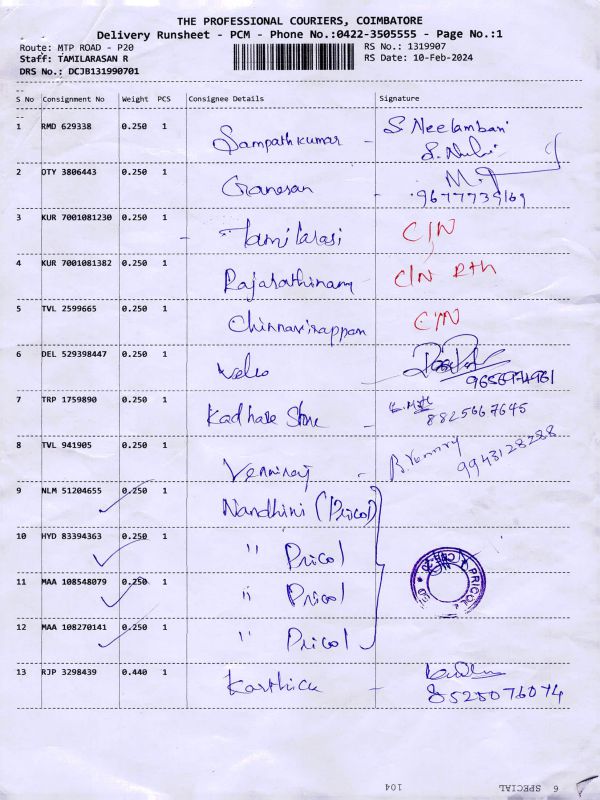 THE PROFESSIONAL COURIERS, COIMBATORE
Delivery Runsheet - PCM - Phone No.:0422-3505555 - Page No.:1
Route: MTP ROAD - P20 RS No.: 1319907
Staff: TAMILARASAN R RS Date: 10-Feb-2024
DRS No.: DCJB131990701
S No Consignment No Weight PCS Consignee Details Signature
1 RMD 629338 0.250 1 Sampathkumar - S Neelambari
2 OTY 3806443 0.250 1 Ganesan - 9677739169
3 KUR 7001081230 0.250 1 - Tamilarasi C/N
4 KUR 7001081382 0.250 1 Rajarathinam - C/N Rtn
5 TVL 2599665 0.250 1 Chinnavirappan C/N
6 DEL 529398447 0.250 1 - 9656974961
7 TRP 1759890 0.250 1 Kadhare Store - 8825667645
8 TVL 941905 0.250 1 Venniraj - 9943128288
9 NLM 51204655 0.250 1 Nandhini (Pricol)
10 HYD 83394363 0.250 1 " Pricol
11 MAA 108548079 0.250 1 " Pricol
12 MAA 108270141 0.250 1 " Pricol
PRICOL
13 RJP 3298439 0.440 1 Karthick - 8525076074
6 SPECIAL 104